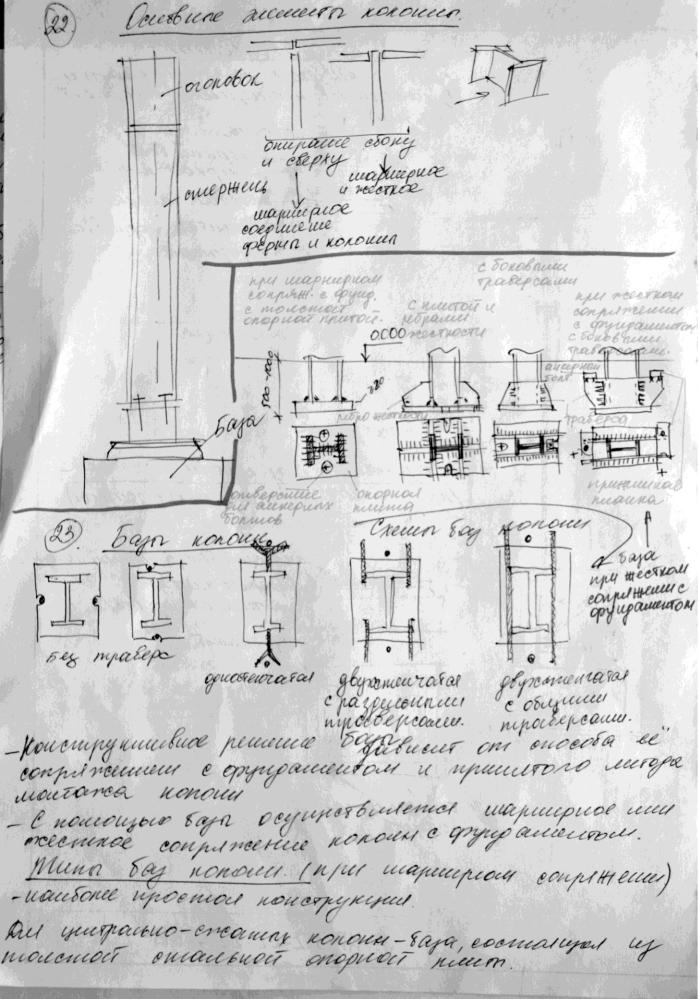 22. Основные элементы колонны.
оголовок
опирание сбоку
и сверху
шарнирное
и жёсткое
стержень
шарнирное
соединение
фермы и колонны
с боковыми
траверсами
при шарнирном
сопряж. с фунд.
с толстой
опорной плитой.
с плитой и
рёбрами
жёсткости
при жёстком
сопряжении
с фундаментом
с боковыми
траверсами.
0.000
анкерный
болт
500-1000
ребро жёсткости
траверса
База
отверстие
для анкерных
болтов
опорная
плита
прижимная
планка
23. Базы колонн
Схемы баз колонн
база
при жёстком
сопряжении с
фундаментом
без траверс
одностенчатая
двухстенчатая
с раздельными
траверсами.
двухстенчатая
с общими
траверсами.
- Конструктивное решение базы зависит от способа её
сопряжением с фундаментом и принятого метода
монтажа колонн
- С помощью базы осуществляется шарнирное или
жёсткое сопряжение колонн с фундаментом.
Типы баз колонн. (при шарнирном сопряжении)
- наиболее простая конструкция.
Для центрально-сжатых колонн - база, состоящая из
толстой стальной опорной плиты.